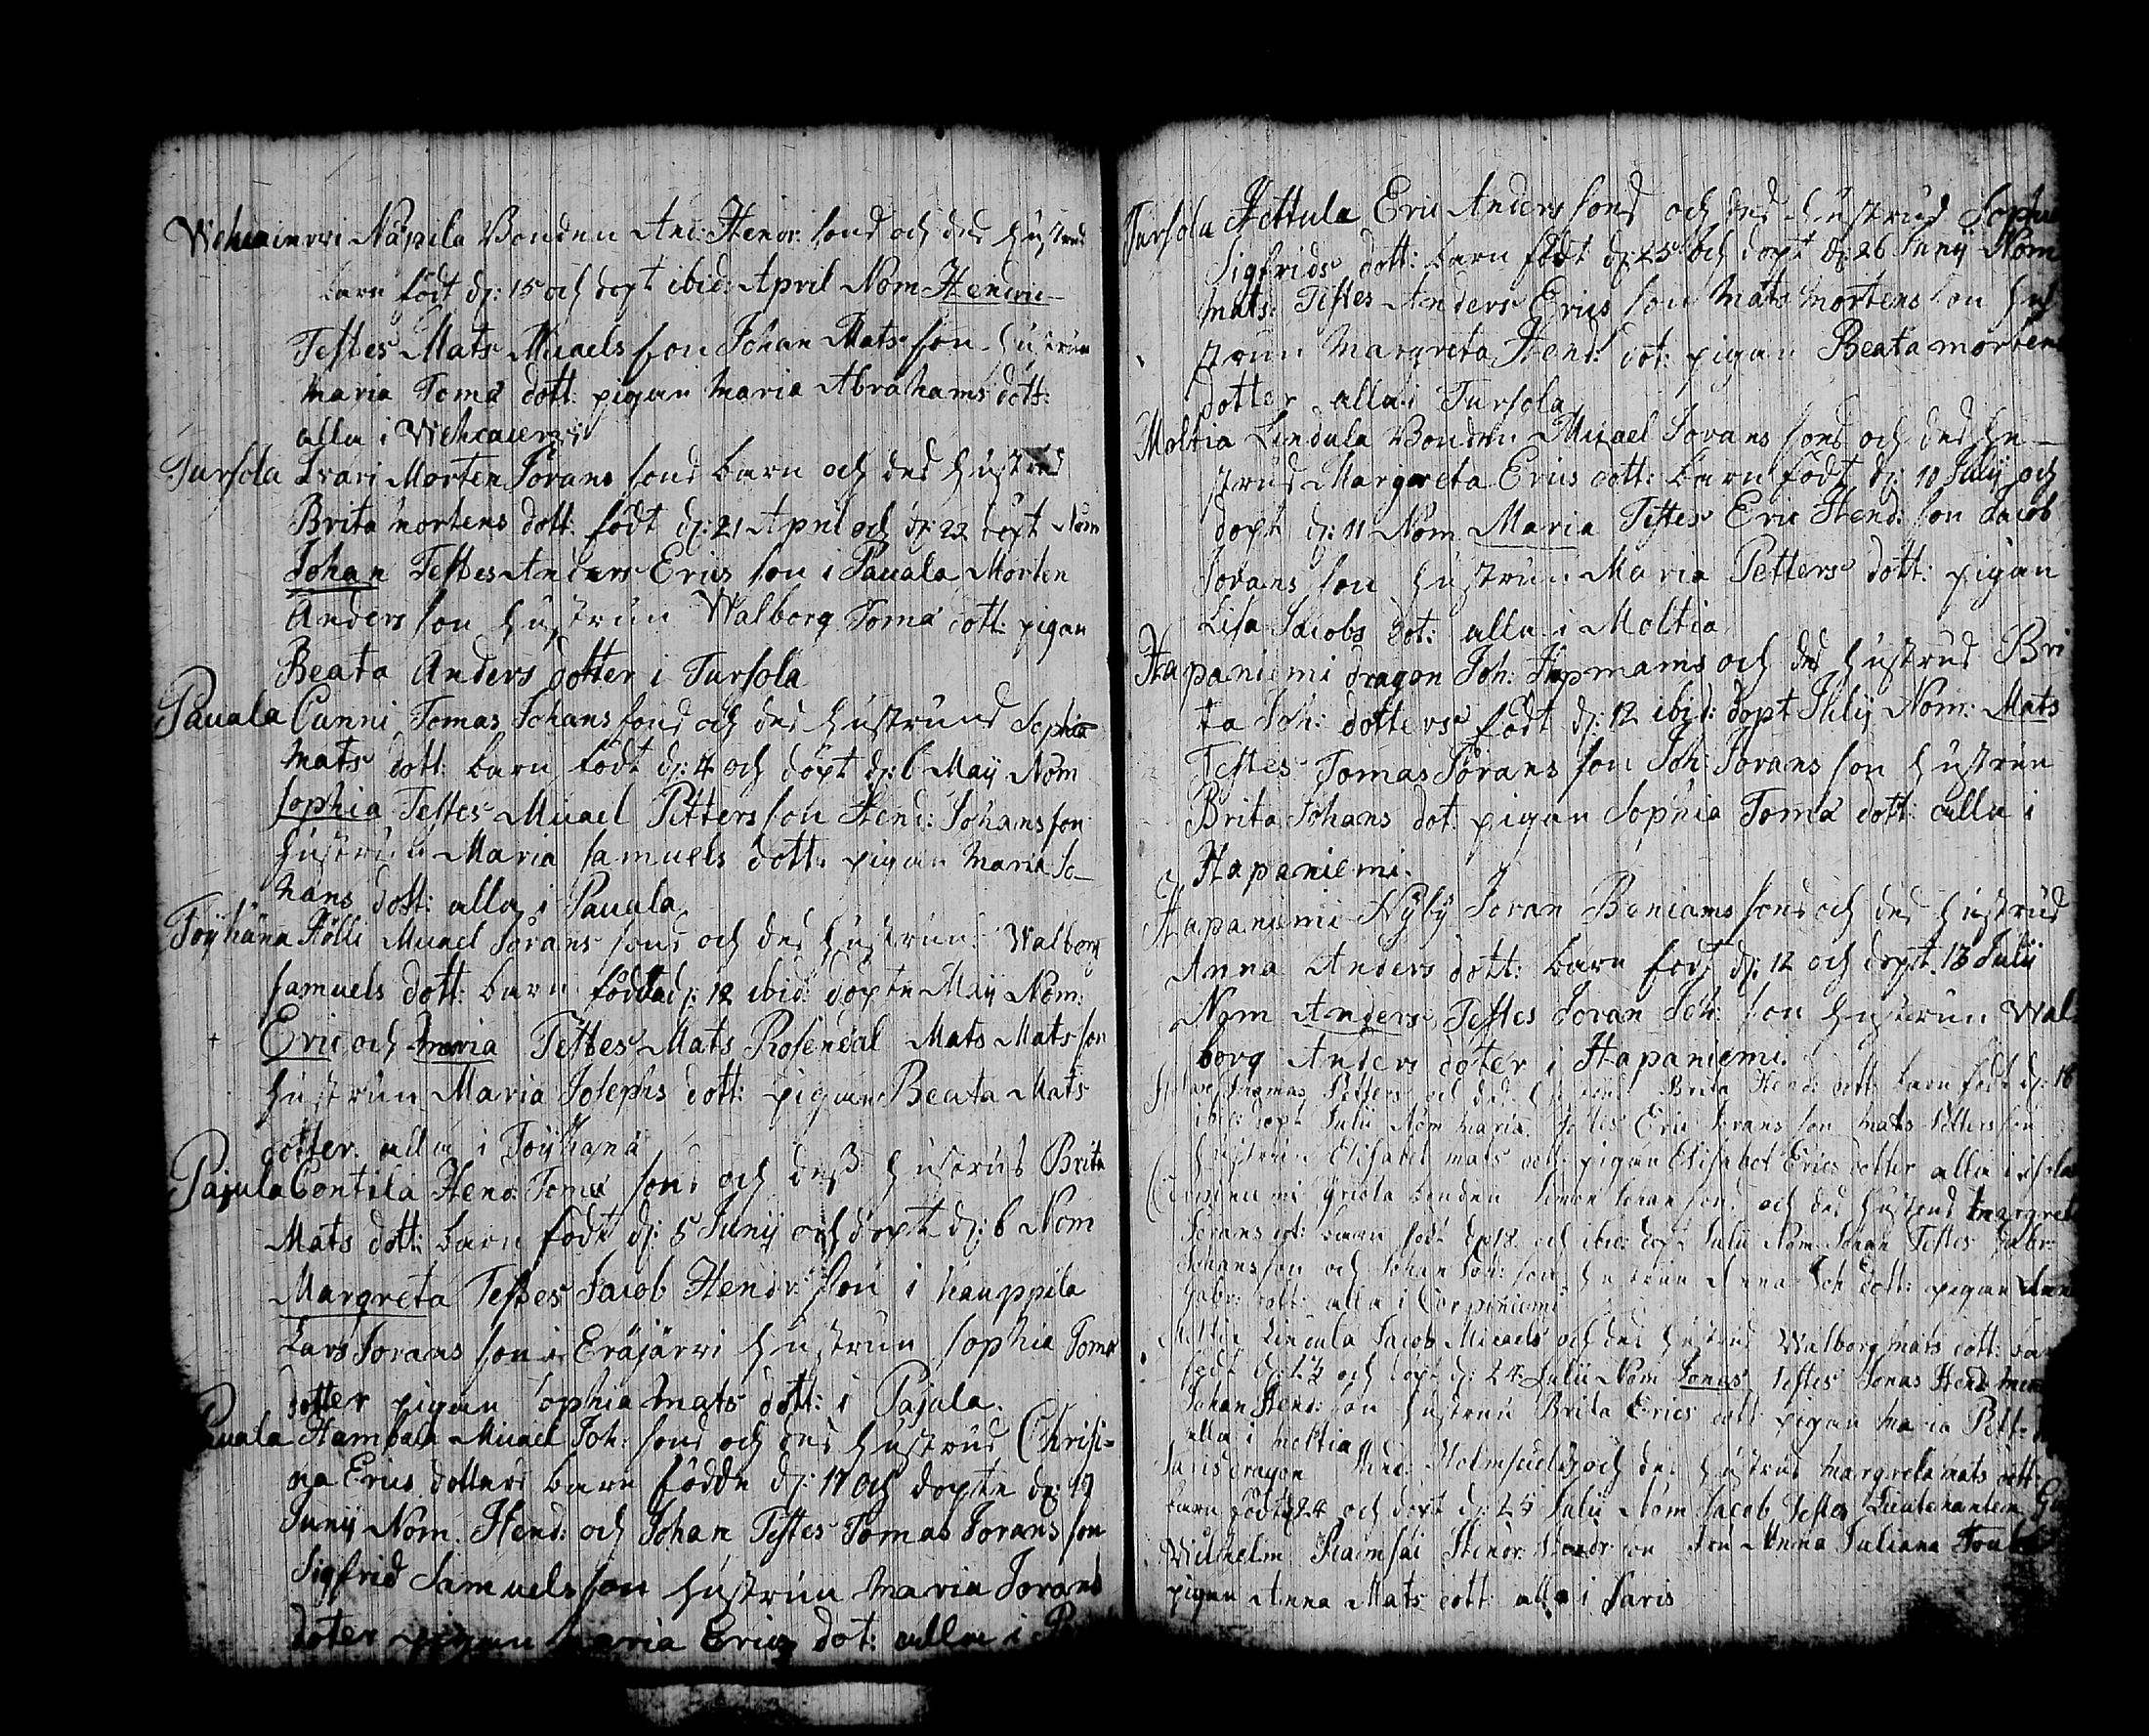 Wehcaierwi Näpila Bonden And: Henor: sons och des hustrus
barn födt d: 15 och dopt ibid: April Nom Henric
Testes Mats Micaels son Johan Mats son hustrun
Maria Toma dott: pigan Maria Abrahams dott:
alla i Wehcaierwi
Tursola Ivari Morten Jörans sons barn och des hustrus
Brita Mortens dott: födt d: 21 April och d: 22 dopt Nom
Johan Testes Anders Erics son i Pauala Morten
Anders son hustrun Walborg Toma dott: pigan
Beata Anders dotter i Tursola
Pauala Cunni Tomas Johans sons och des hustrus Sophia
Mats dott: barn födt d: 4 och döpt d: 6 Maij Nom
Sophia Testes Micael Petters son Hend: Johans son
hustrun Maria Samuels dott: pigan Maria Jo-
hans dott: alla i Pauala
Töyhänä Hölli Micael Jörans sons och des hustrus Walborg
Samuels dott: barn födda d: 12 ibid: dopte Maij Nom:
Eric och Maria Testes Mats Rosendal Mats Mats son
hustrun Maria Josephs dott: pigan Beata Mats
dotter alla i Töyhänä
Pajula Contila Hend: Toma sons och dess hustrus Brita
Mats dott: barn födt d: 5 Junij och dopt d: 6 Nom
Margreta Testes Jacob Hendr: son i Kauppila
Lars Jorans son i Eräjärvi hustrun Sophia Toma
dotter pigan Sophia Mats dott: i Pajula.
Puala Micael Joh: sons och des hustrus Christi-
na Erics dotters barn födde d: 17 och dopte d: 19
Junij Nom. Hend: och Johan Testes Tomas Jorans son
Sigfrid Samuels son hustrun Maria Jorans
doter pigan Maria Erics dot: alla i
Tursola Hettula Eric Anders sons och des hustrus Sophia
Sigfrids dott: barn födt d: 25 och dopt d: 26 Junij Nom
Mats: Testes Anders Erics son Mats Mortens son hu
strun Margreta Hend: dot: pigan Beata Mortens
dotter alla i Tursola
Moltia Lindula Bonden Micael Jorans sons och des hu-
strus Margreta Erics dott: barn födt d: 10 Julij och
dopt d: 11 Nom Maria Testes Eric Hend: son Jacob
Jorans son hustrun Maria Petters dott: pigan
Lisa Jacobs dot: alla i Moltia
Hapaniemi dragon Joh: och des hustrus Bri
ta Joh: dotters födt d: 12 ibid: dopt Julij Nom: Mats
Testes Tomas Jörans son Joh: Jorans son hustrun
Brita Johans dot: pigan Sophia Toma dott: alla i
Hapaniemi.
Hapaniemi Nÿbÿ Joran Beniams sons och des hustrus
Anna Anders dott: barn födt d: 12 och dopt 13 Julij
Nom Anders Testes Joran Joh: son hustrun Wal
borg Anders doter i Hapaniemi.
Thomas Petters och des hustrus Brita Hend: dott: barn födt d: 16
ibid: dopt Julii Nom Maria. Testes Eric Jorans son Mats Petters son
hustrun Elisabet Mats dott: pigan Elisabet Erics dotter alla i
bonden Simon Johan sons och des hustrus Margret
Jorans dot: barn födt d: 18 och ibid: dopt Julii Nom Johan Testes Gabr:
Johans son och Johan Joh: son hustrun Anna Joh: dott: pigan Ann
Gabr: dott: alla i Corpiniemi
Moltia Lindula Jacob Micaels och des hustrus Walborg Mats dott: ba
födt d: 23 och dopt d: 24 Julii Nom Jonas Testes Jonas Hend:
Johan Hend: son hustrun Brita Erics dott: pigan Maria Pett:
alla i Moltia
Saris dragon Hind: och des hustrus Margreta Mats dott:
barn födt d: 24 och dopt d: 25 Julii Nom Jacob Testes Lieutenanten
Wilhelm Ramsai Henor: son Fru Anna Juliana
pigan Anna Mats dott: alla i Saris